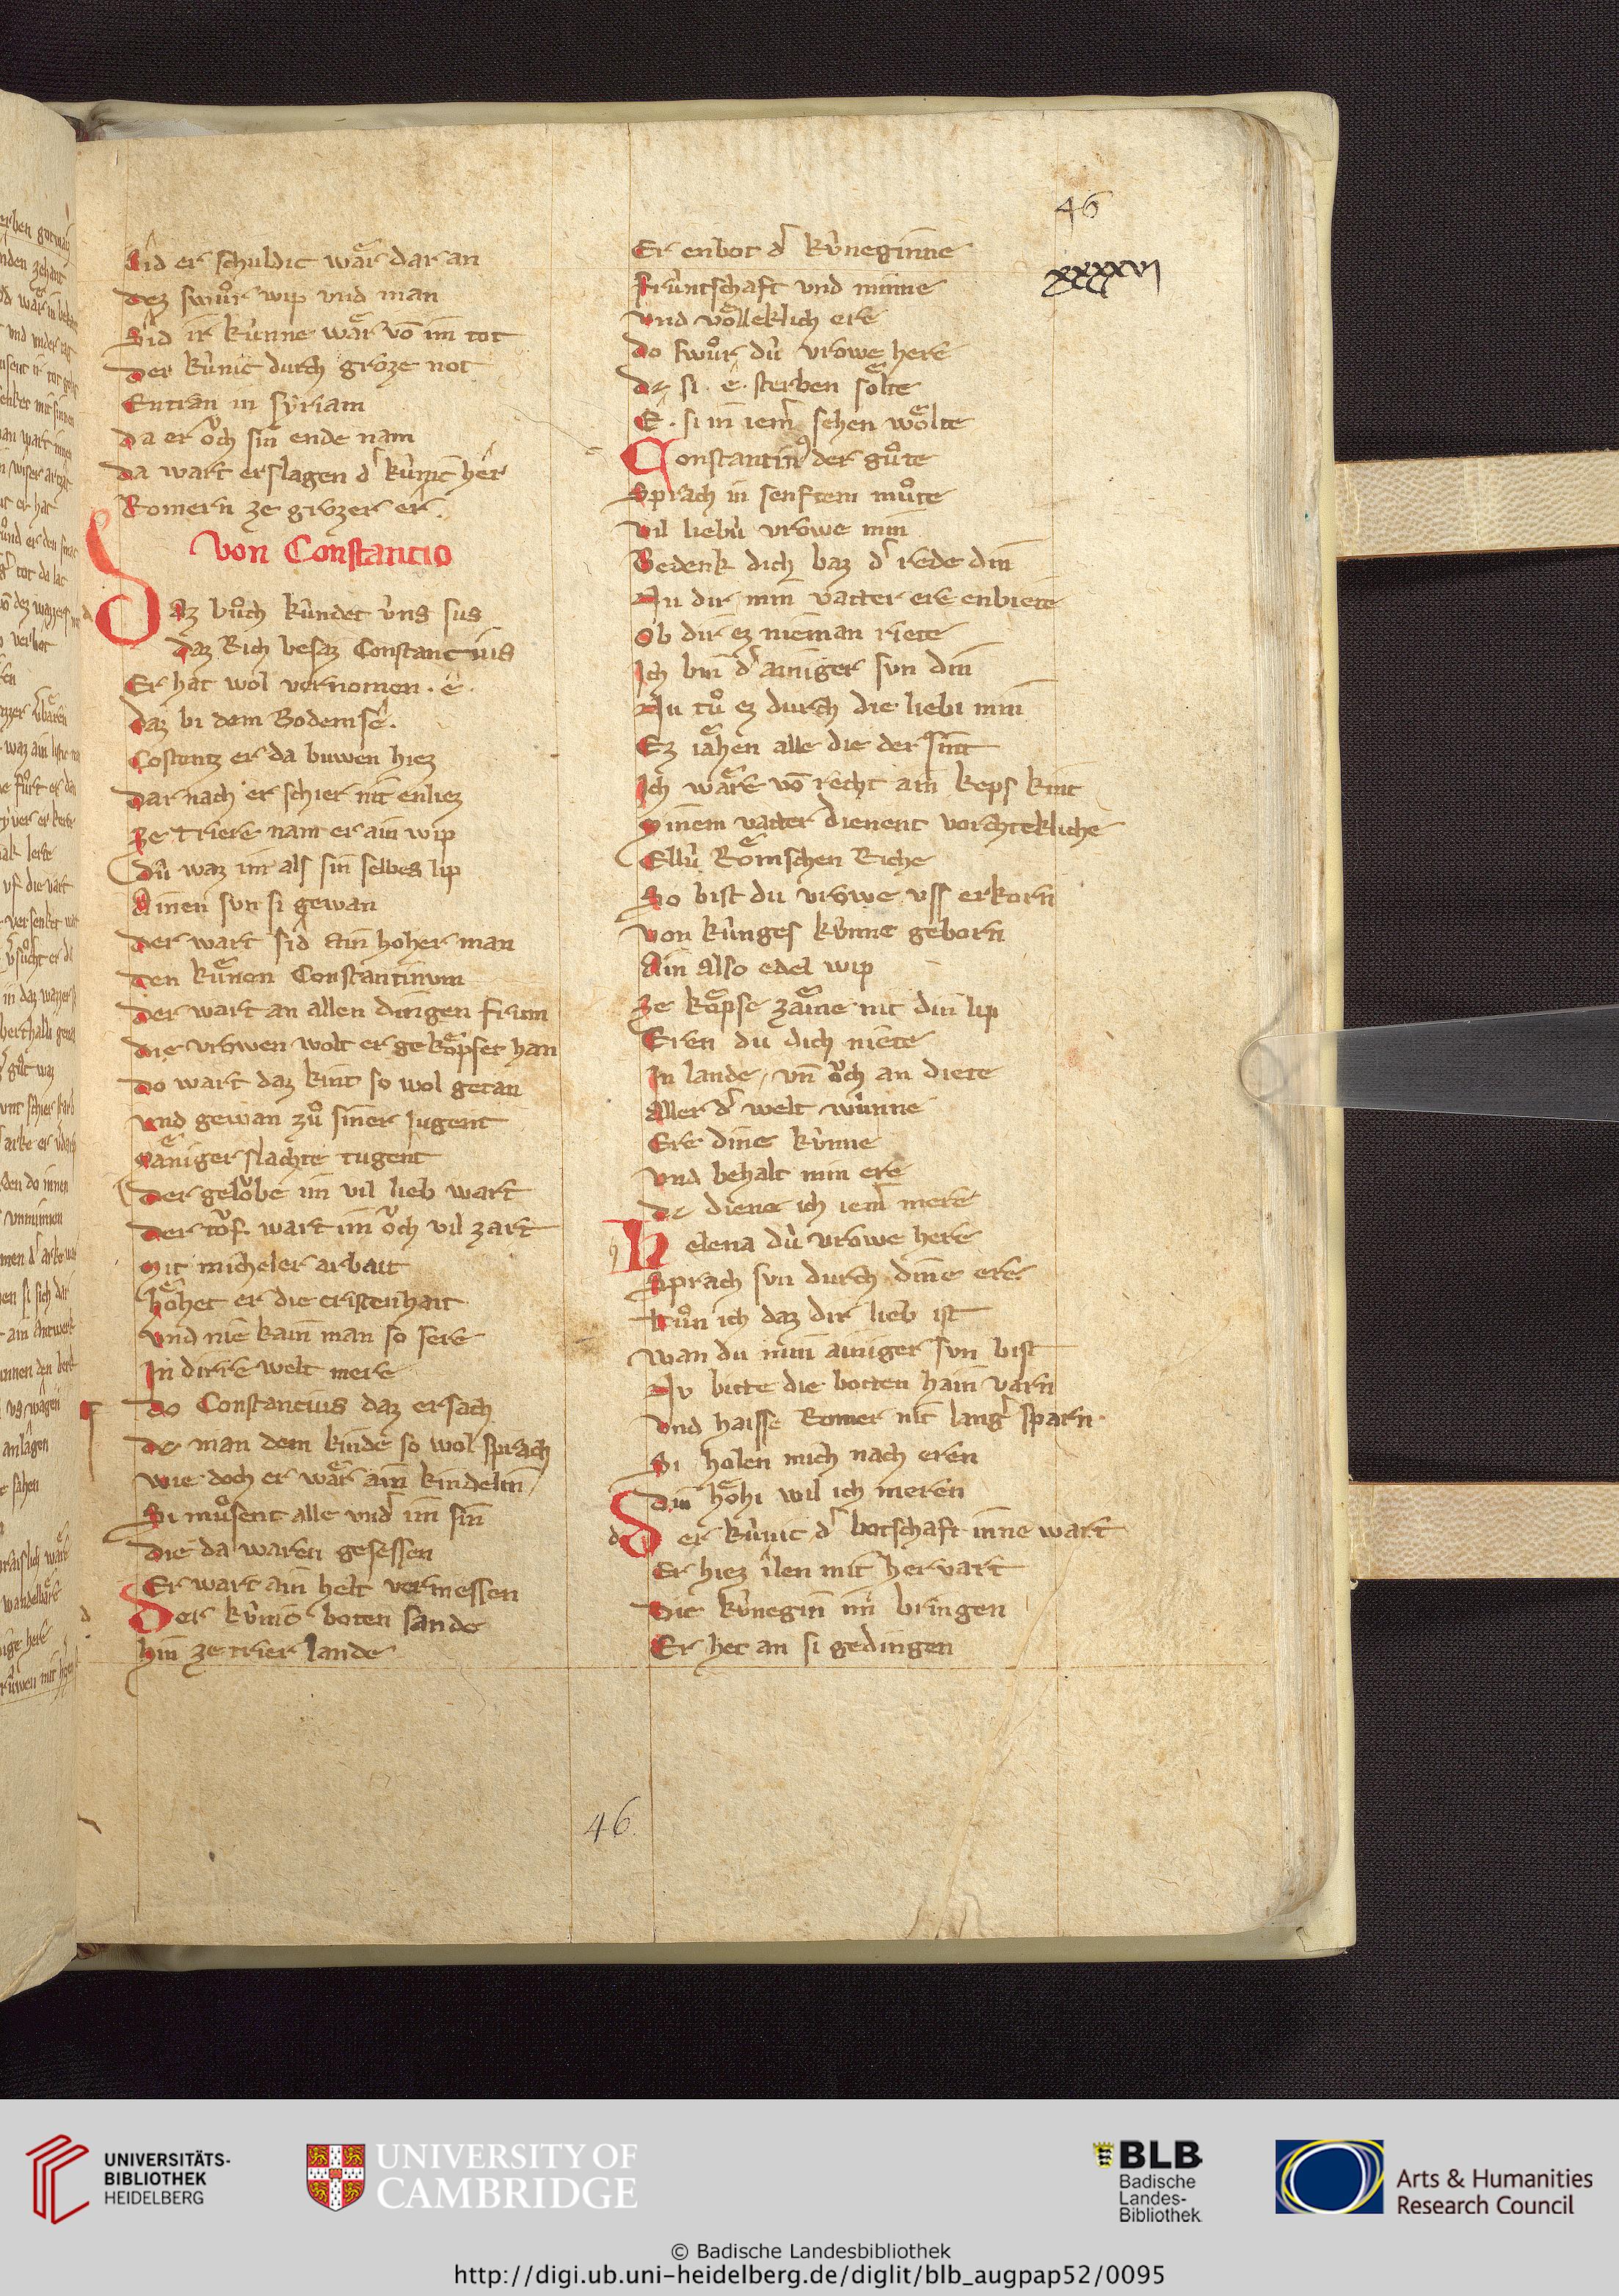 46
xxxxvi
Sid er schuldic waͤr dar an
dez swuͦr wip vnd man
Sid ir kuͤnne waͤr võ im tot
Der kuͤnic durch groze not
Entran in syriam
Da er oͮch sin ende nam
Da wart erslagen dˢ kuͤnic her
Romern ze grozer er
Von Constancio
Daz buͦch kuͤndet vns sus
daz Rich besaz Constancius
Er hat wol vernomen . e .
Daz bi dem Bodemse .
Costentz er da buwen hiez
Dar nach er schier nit enliez
Ze triere nam er ain wip
Duͤ waz im als sin selbes lip
Ainen svn si gewan
Der wart sid ain hoher man
Den kuͤnen Constantinvm
Der wart an allen dingen frum
Die vrowen wolt er gekoͤpset han
Do wart daz kint so wol getan
Vnd gewan zuͦ siner iugent
Maͤniger slachte tugent
Der geloͮbe im vil lieb wart
Der toͮf wart im oͮch vil zart
Mit micheler arbait
Hoͤhet er die cristenhait
Vnd nie kain man so sere
In dirre welt mere
Do Constancius daz ersach
dc man dem kinde so wol sprach
Wie doch er waͤr ain kindelin
Si muͦsent alle vndˢ im sin
Die da waren gesessen
Er wart ain helt vermessen
Der kuͤnic boten sande
Hin ze trier lande
Er enbot dˢ kuͤneginne
Fruͤntschaft vnd minne
Vnd voͤlleklich ere
Do swuͦr duͤ vrowe here
dc si . e . sterben soͤlte
E . si in iemˢ sehen woͤlte
Constantinꝰ der guͦte
Sprach in senftem muͦte
Vil liebuͤ vrowe min
Bedenk dich baz dˢ rede din
Nu dir min vatter ere enbiete
Ob dir ez nieman riete
Ich bin dˢ ainiger svn din
Nu tuͦ ez durch die liebi min
Ez iaͤhen alle die der sint
Ich waͤre võ recht ain keps kint
Minem vatter dienent vorchtekliche
Elluͤ Roͤmschen Riche
So bist du vrowe vss erkorn
Von kuͤnges kuͤnne geborn
Ain also edel wip
Ze koͤpse zaͤme nit din lip
Eren du dich niete
In lande / vñ oͮch an diete
Aller dˢ welt wuͤnne
Ere dine kuͤnne
Vnd behalt min ere
Dc diene ich iemˢ mere
Helena duͤ vrowe here
Sprach svn durch dine ere
Tuͦn ich daz dir lieb ist
Wan du min ainiger svn bist
Nv bitte die botten hain varn
Vnd haisse Romer nit langˢ sparn
Si holen mich nach eren
Din hoͤhi wil ich meren
Der kuͤnic dˢ botschaft inne wart
Er hiez ilen mit hervart
Die kuͤnegin im bringen
Er het an si gedingen
46.
UNIVERSITÄTS-
BIBLIOTHEK
HEIDELBERG
UNIVERSITY OF
CAMBRIDGE
BLB
Badische
Landes-
Bibliothek
Arts & Humanities
Research Council
© Badische Landesbibliothek
http://digi.ub.uni-heidelberg.de/diglit/blb_augpap52/0095